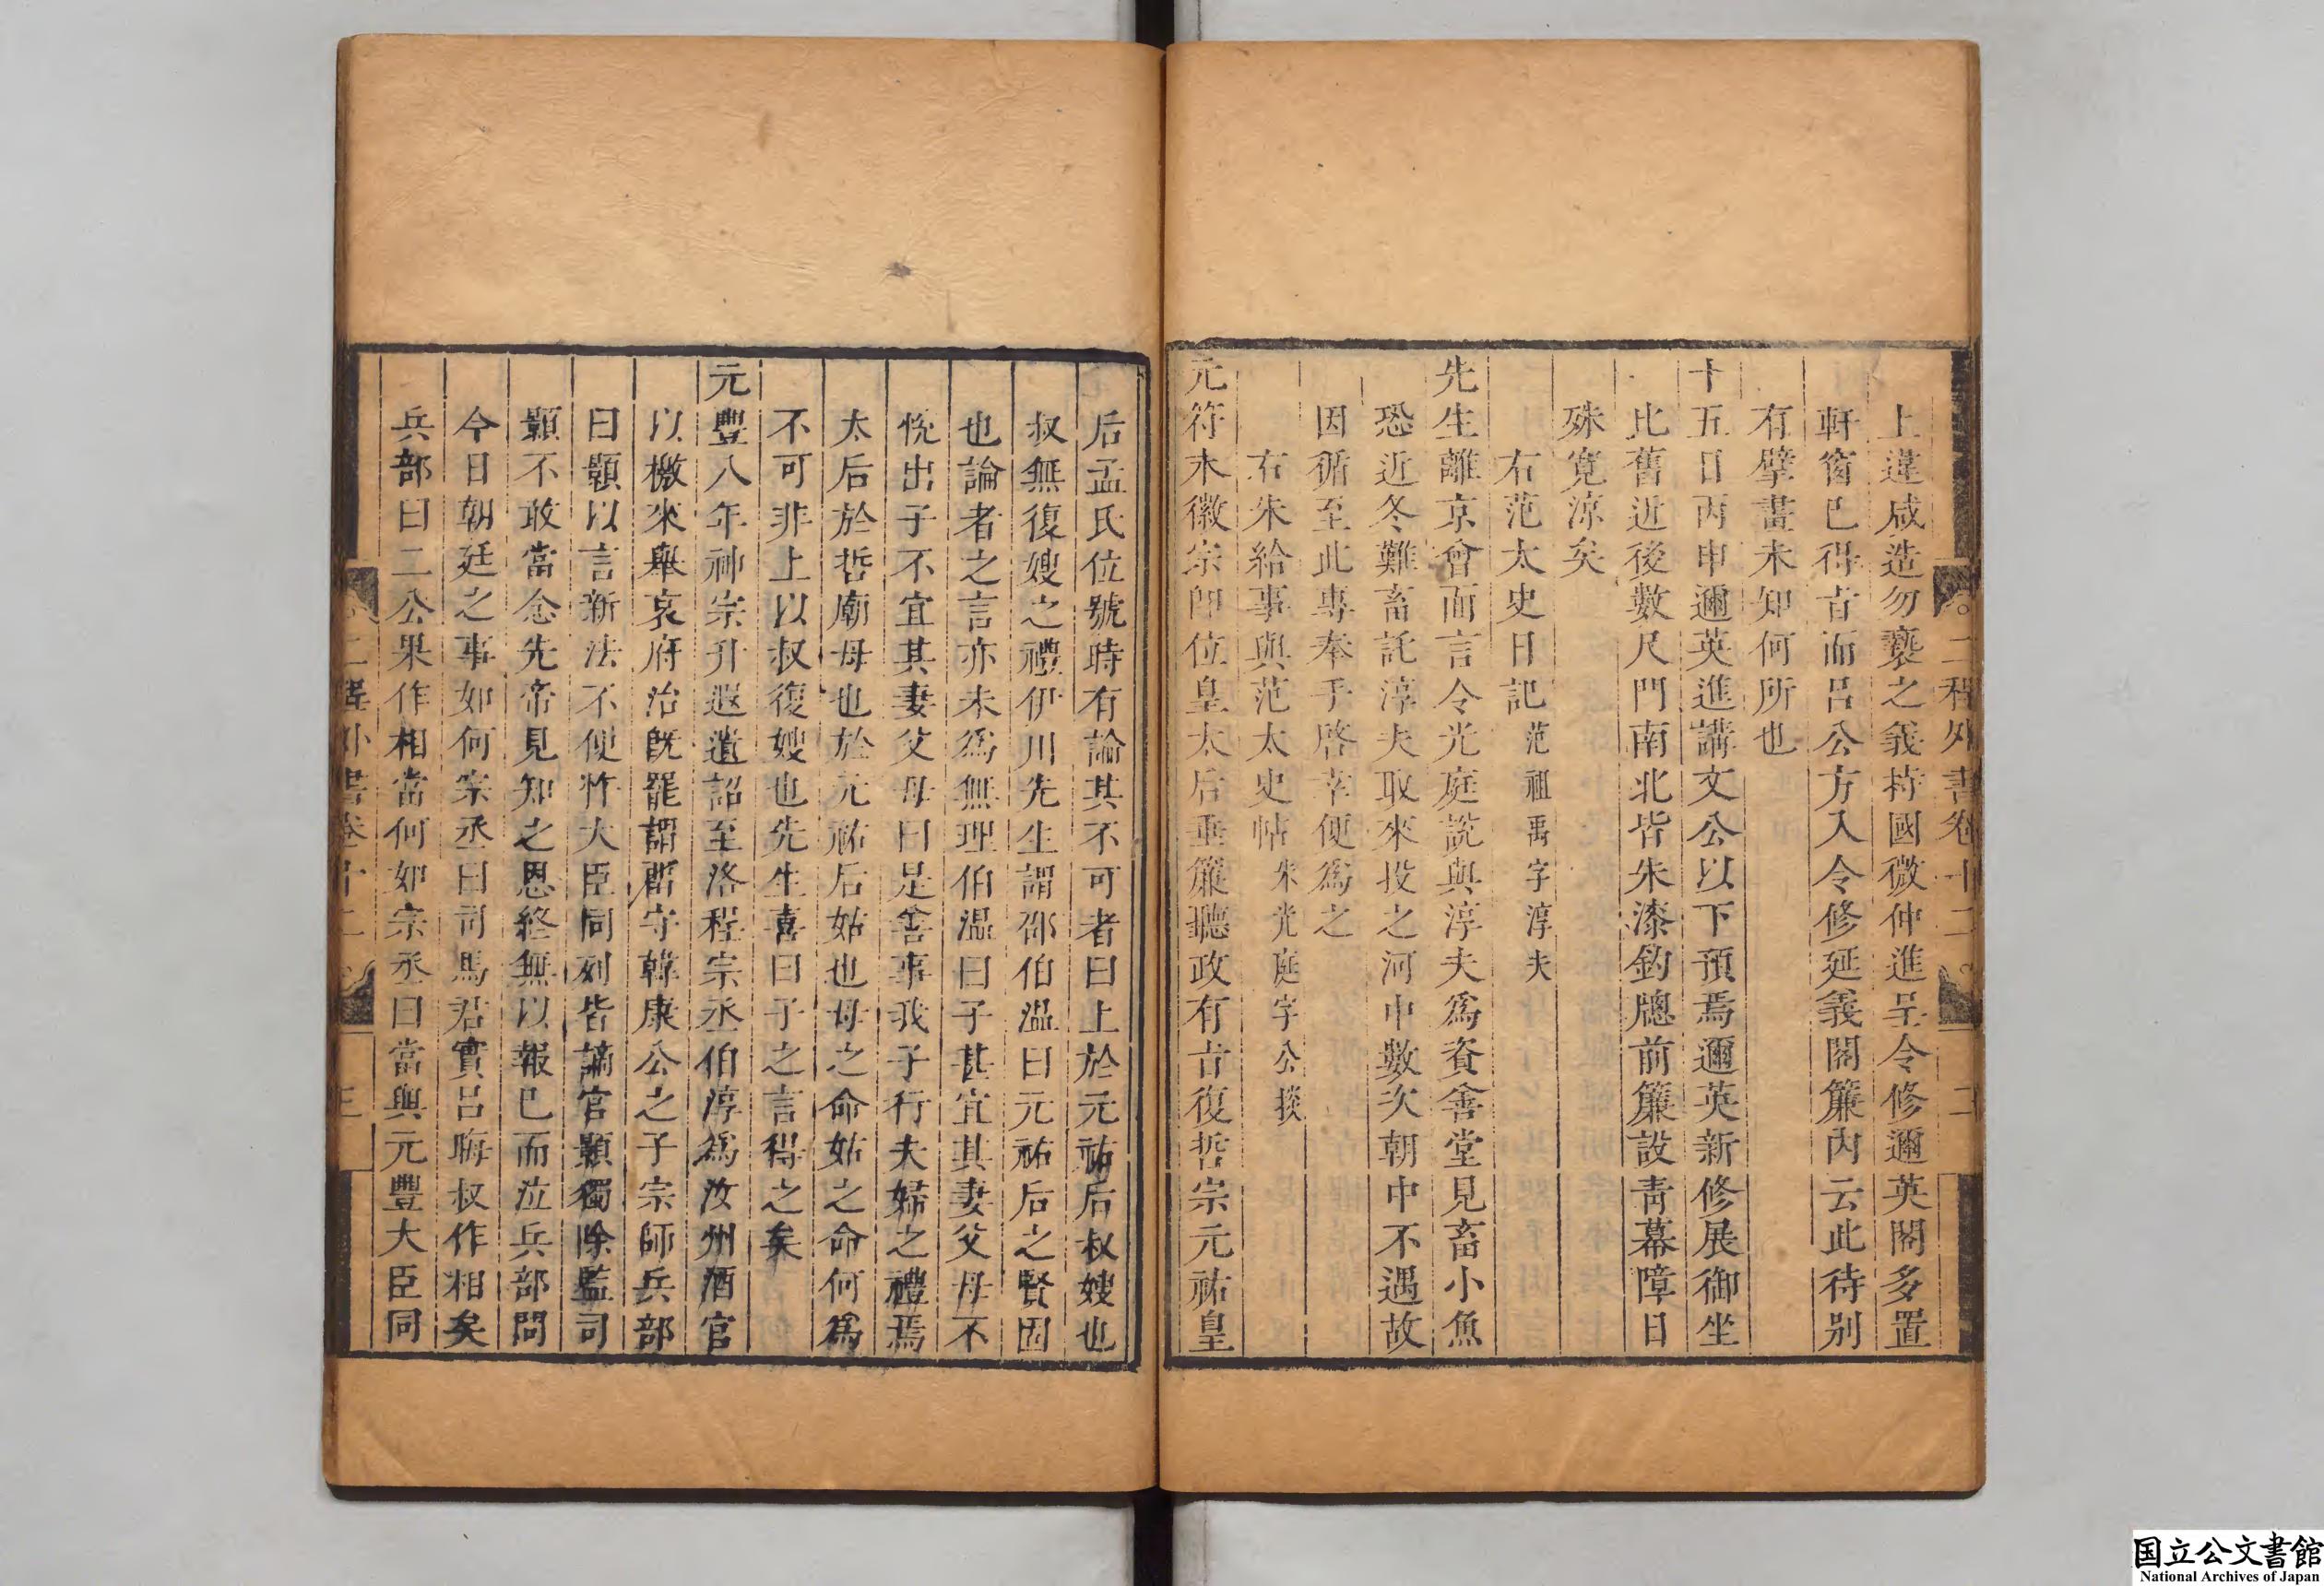 二程外書卷十二
二
上違咸造勿褻之義持國微仲進呈令修邇英閣多置
軒窗已得旨而呂公方入令修延義閣簾內云此待别
有擘畫未知何所也
十五日丙申邇英進講文公以下預焉邇英新修展御坐
比舊近後數尺門南北皆朱漆釣牕前簾設靑幕障日
殊寛涼矣
右范太史日記范祖禹字淳夫
先生離京會面言令光庭説與淳夫爲資善堂見畜小魚
恐近冬難畜託淳夫取來投之河中數次朝中不遇故
因循至此專奉手啓幸便爲之
右朱給事與范太史帖朱光庭字公掞
元符末徽宗卽位皇太后垂簾聽政有旨復哲宗元祐皇
后孟氏位號時有論其不可者曰上於元祐后叔嫂也
叔無復嫂之禮伊川先生謂邵伯温曰元祐后之賢固
也論者之言亦未爲無理伯温曰子甚宜其妻父母不
悅出子不宜其妻父母曰是善事我子行夫婦之禮焉
太后於哲廟母也於元祐后姑也母之命姑之命何爲
不可非上以叔復嫂也先生喜曰子之言得之矣
元豐八年神宗升遐遺詔至洛程宗丞伯淳爲汝州酒官
以檄來舉哀府治旣罷謂留守韓康公之子宗師兵部
曰顥以言新法不便忤大臣同列皆謫官顥獨除監司
顥不敢當念先帝見知之恩終無以報已而泣兵部問
今日朝廷之事如何宗丞曰司馬君實呂晦叔作相矣
兵部曰二公果作相當何如宗丞曰當與元豐大臣同
二程外書卷十二
三
国立公文書館
National Archives of Japan